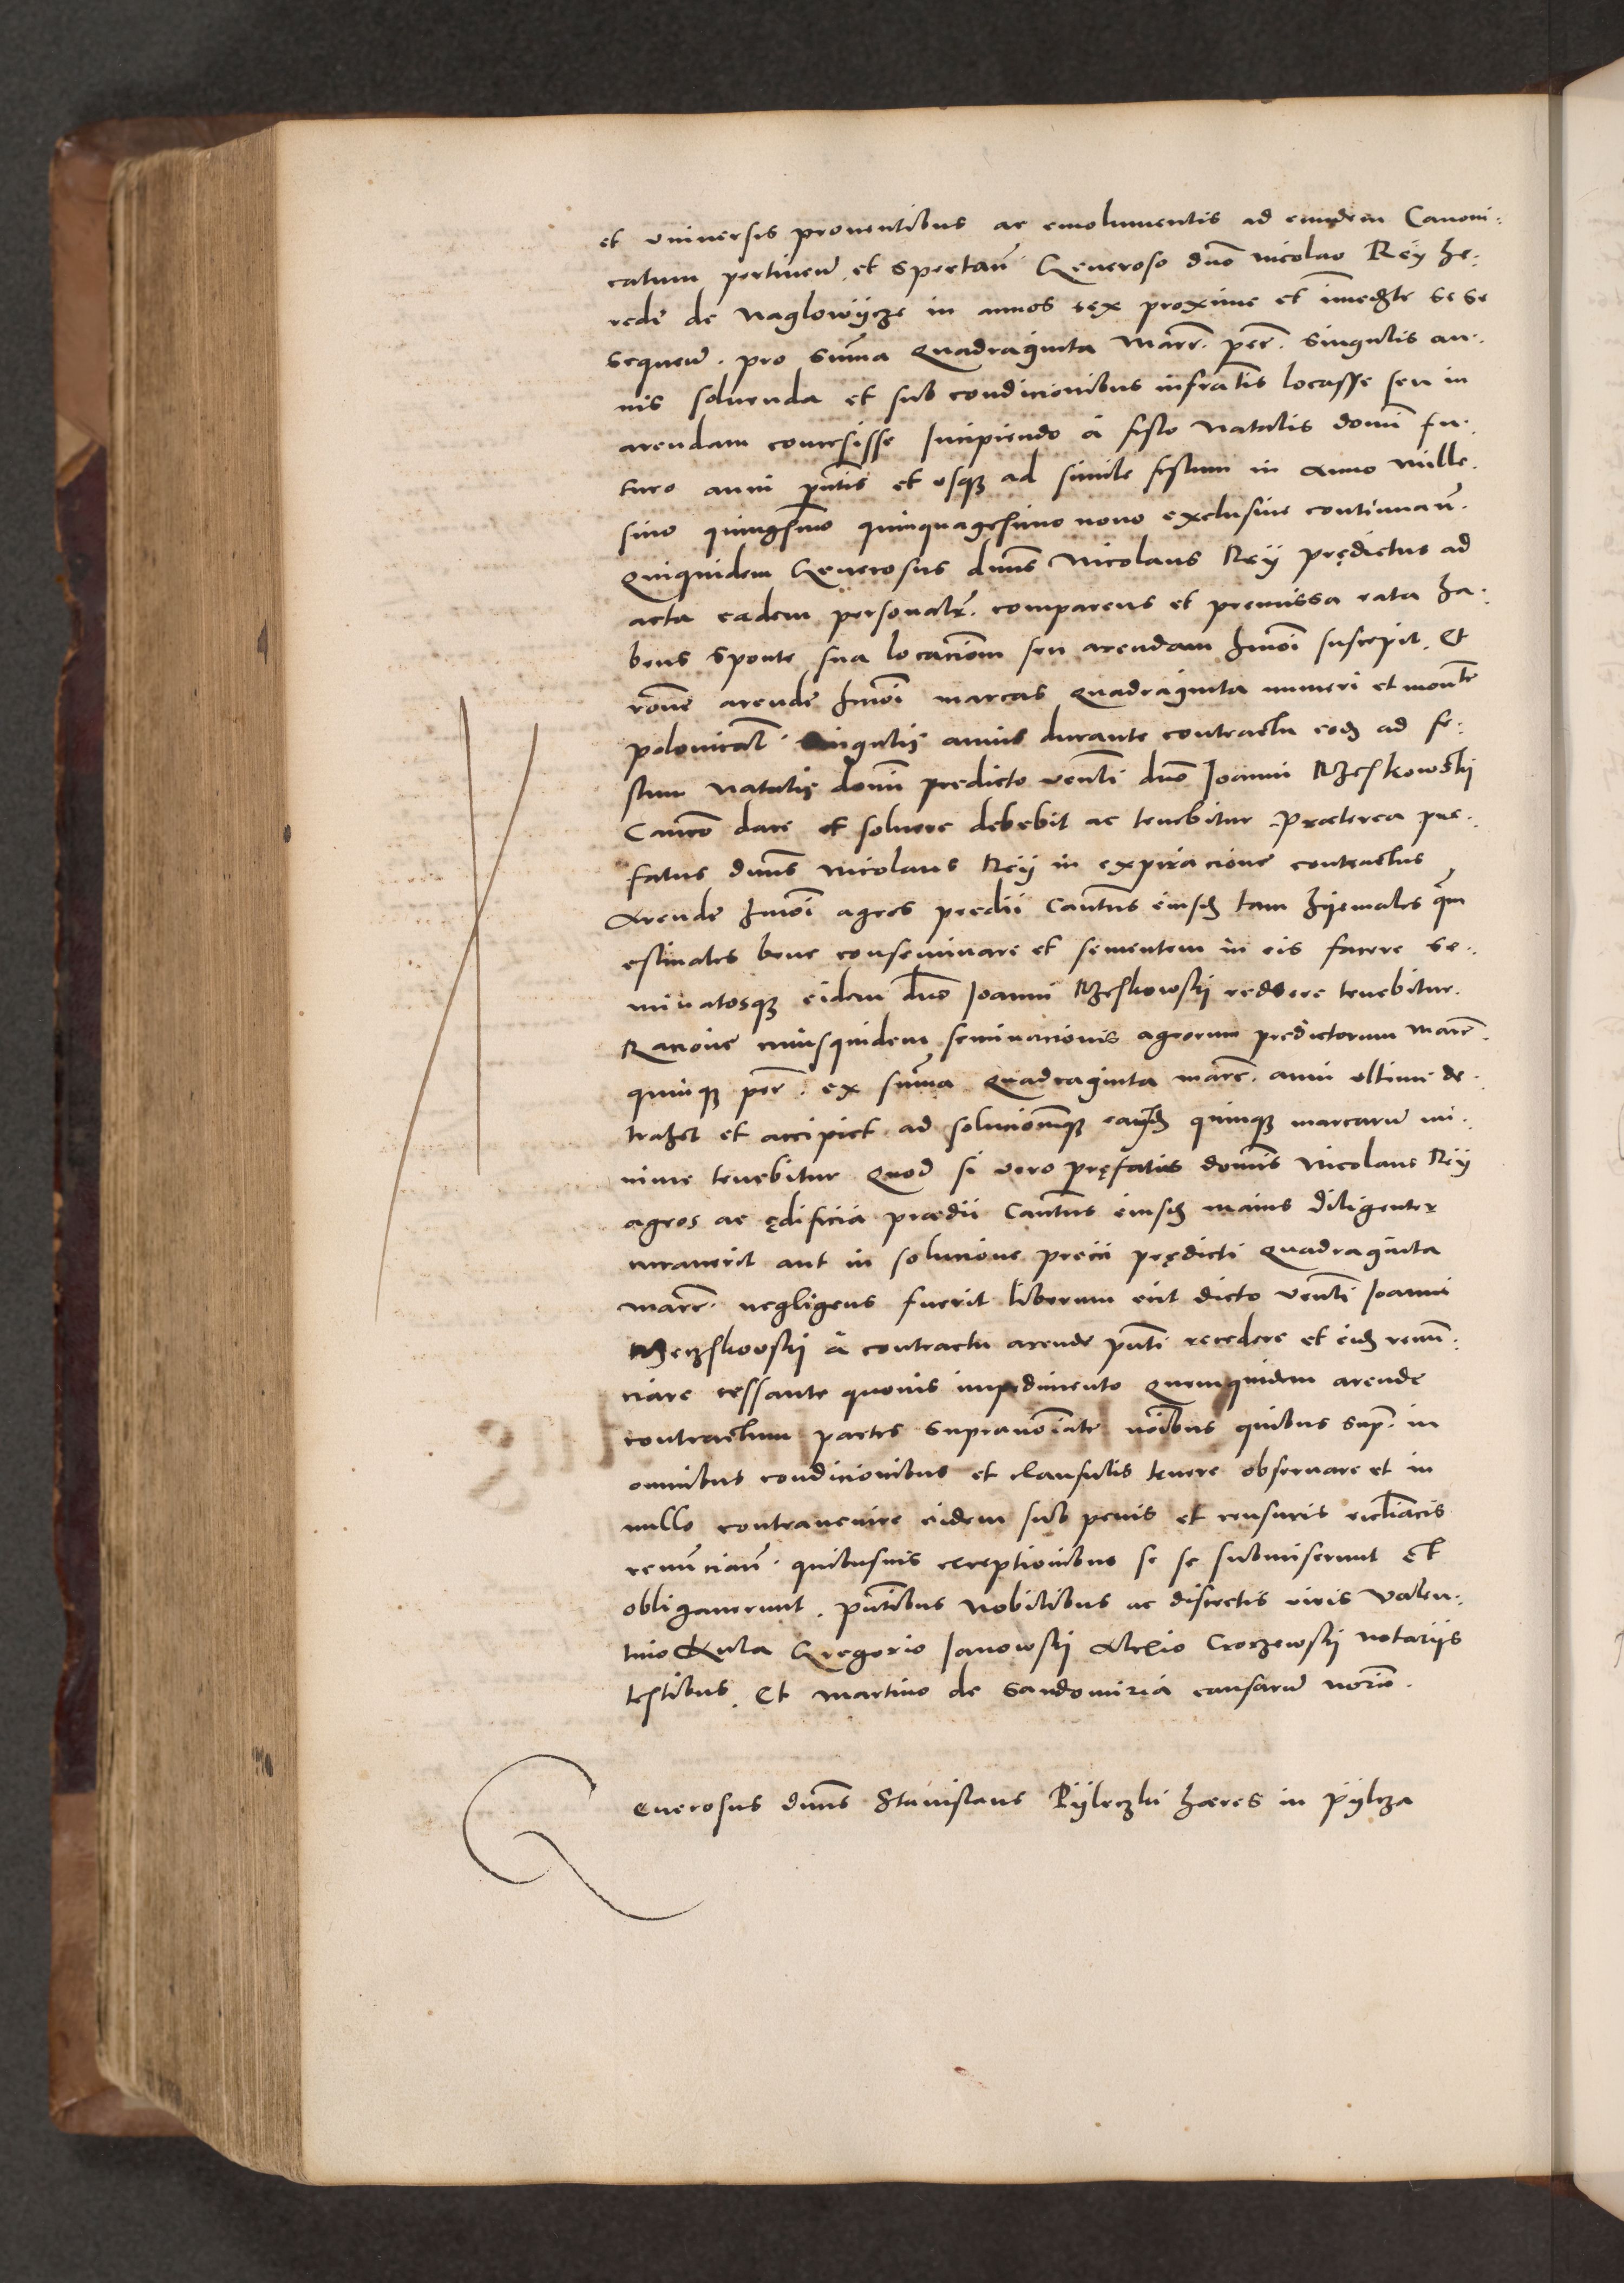 et vniversis proventibus ac emolumentis ad eundem Canoni-
catum pertineñ. et spectañ. Generoso dno Nicolao Rey he-
redi de Naglowycze in annos sex proxime et imediate se se
sequeñ. pro suma Quadraginta Marc. pec. singulis an-
nis solvenda et sub condicionibus infractis locasse seu in
arendam concessisse Incipiendo à festo Natalis domi fu-
turo anni pntis et vsque ad simile festum in Anno Mille-
simo quingesimo quinquagesimo nono exclusive continuañ.
Quiquidem Generosus dnus Nicolaus Rey prędictus ad
acta eadem personalr. comparens et premissa rata ha-
bens sponte sua locacionem seu arendam hmoi suscepit. Et
rone arende hmoi marcas Quadraginta numeri et monte
polonical. singulis annis durante contractu eod ad fe-
stum Natalis domi predicto venli dno Joanni Meskowski
Canco dare et solvere debebit ac tenebitur Præterea pre-
fatus dnus Nicolaus Rey in expiracione contractus
Arende hmoi agros predii Cantus eiusd tam hyemales qm
estivales bene conseminare et sementem in eis facere se-
minatosque eidem dno Joanni Meskowski reddere tenebitur.
Racione cuiusquidem seminacionis agrorum predictorum marc.
quinque pec. ex suma Quadraginta marc. anni vltimi de-
trahet et accipiet ad solucionemque earund quinque marcaru mi-
nime tenebitur Quod si vero pręfatus domus Nicolaus Rey
agros ac ędificia prædii Cantus eiusd minus diligenter
curaverit aut in solucione precii prędicti Quadraginta
marc. negligens fuerit liberum erit dicto venli Joanni
Meczskowski à contractu arende pnti recedere et eid renun-
ciare cessante quovis impedimento Quemquidem arende
contractum partes supranoiate noibus quibus sup. in
omnibus condicionibus et clausulis tenere observare et in
nullo contravenire eidem sub penis et censuris ecclaicis
renunciañ. quibusvis exceptionibus se se submiserunt Et
obligaverunt. pntibus Nobilibus ac discretis viris Valen-
tino Kula Gregorio Janowski Alexio Croczewski notariis
testibus. Et Martino de Sandomiria causaru norio.
Generosus dnus Stanislaus Pyleczki hæres in Pylcza